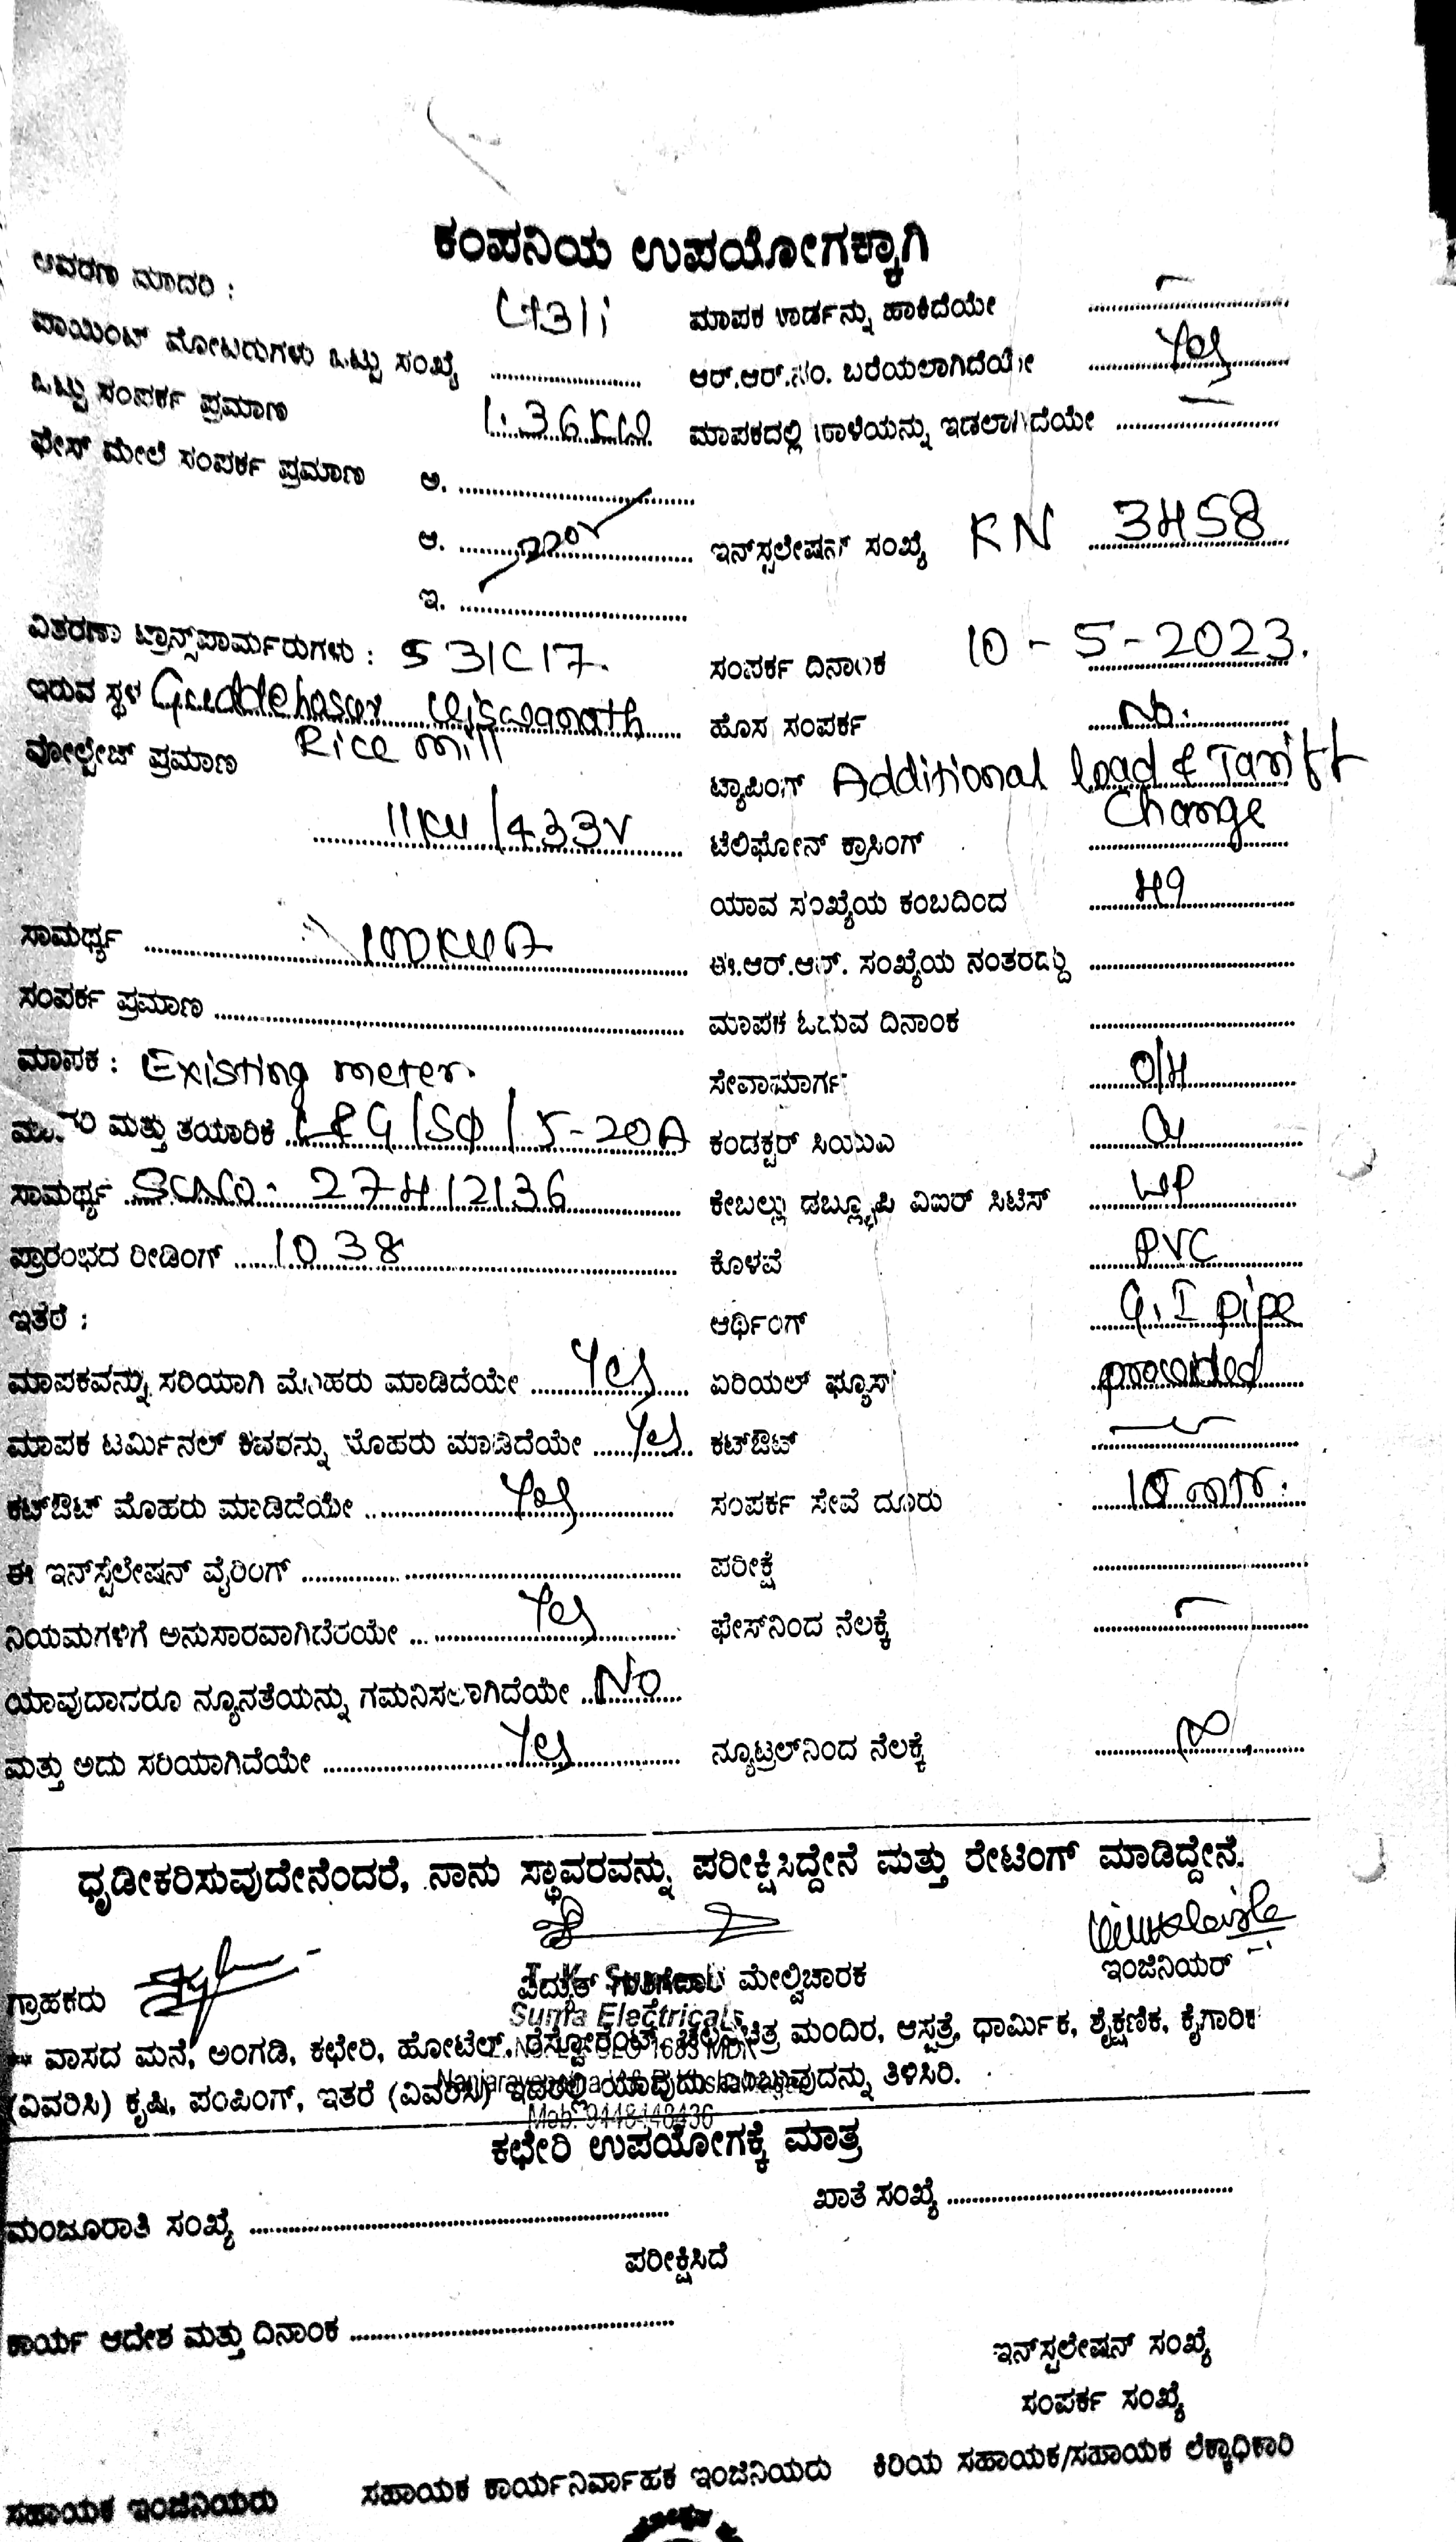 ಕಂಪನಿಯ ಉಪಯೋಗಕ್ಕಾಗಿ
ಆವರಣ ಮಾದರಿ : ಮಾಪಕ ಕಾರ್ಡನ್ನು ಹಾಕಿದೆಯೇ
ಪಾಯಿಂಟ್ ಮೋಟರುಗಳು ಒಟ್ಟು ಸಂಖ್ಯೆ ಆರ್.ಆರ್.ನಂ. ಬರೆಯಲಾಗಿದೆಯೇ Yes
ಒಟ್ಟು ಸಂಪರ್ಕ ಪ್ರಮಾಣ ಮಾಪಕದಲ್ಲಿ ಹಾಳೆಯನ್ನು ಇಡಲಾಗಿದೆಯೇ
ಫೇಸ್ ಮೇಲೆ ಸಂಪರ್ಕ ಪ್ರಮಾಣ ಅ.
ಆ. ಇನ್‌ಸ್ಟಲೇಷನ್ ಸಂಖ್ಯೆ KN 3458
ಇ.
ವಿತರಣಾ ಟ್ರಾನ್ಸ್‌ಪಾರ್ಮರುಗಳು : ಸಂಪರ್ಕ ದಿನಾಂಕ 10 - 5 - 2023.
ಇರುವ ಸ್ಥಳ ಹೊಸ ಸಂಪರ್ಕ No.
Rice mill
ವೋಲ್ಟೇಜ್ ಪ್ರಮಾಣ ಟ್ಯಾಪಿಂಗ್ Additional load & Tariff
Change
11KV/433V ಟೆಲಿಫೋನ್ ಕ್ರಾಸಿಂಗ್
ಯಾವ ಸಂಖ್ಯೆಯ ಕಂಬದಿಂದ 49
ಸಾಮರ್ಥ್ಯ 100KVA ಈ.ಆರ್.ಆರ್. ಸಂಖ್ಯೆಯ ನಂತರದ್ದು
ಸಂಪರ್ಕ ಪ್ರಮಾಣ ಮಾಪಕ ಓದುವ ದಿನಾಂಕ
ಮಾಪಕ : Existing meter. ಸೇವಾಮಾರ್ಗ O/H
ಮಾದರಿ ಮತ್ತು ತಯಾರಿಕೆ L&G/Sφ/5-20A ಕಂಡಕ್ಟರ್
ಸಾಮರ್ಥ್ಯ 27412136 ಕೇಬಲ್ಲು ಡಬ್ಲ್ಯೂಪಿ ವಿಐರ್ ಸಿಟಿಸ್ WP
ಪ್ರಾರಂಭದ ರೀಡಿಂಗ್ 1038 ಕೊಳವೆ PVC
ಇತರೆ : ಆರ್ಥಿಂಗ್ G.I pipe
ಮಾಪಕವನ್ನು ಸರಿಯಾಗಿ ಮೊಹರು ಮಾಡಿದೆಯೇ Yes ಏರಿಯಲ್ ಫ್ಯೂಸ್ provided
ಮಾಪಕ ಟರ್ಮಿನಲ್ ಕವರನ್ನು ಮೊಹರು ಮಾಡಿದೆಯೇ Yes ಕಟ್‌ಔಟ್
ಕಟ್‌ಔಟ್ ಮೊಹರು ಮಾಡಿದೆಯೇ Yes ಸಂಪರ್ಕ ಸೇವೆ ದೂರು
ಈ ಇನ್‌ಸ್ಟೆಲೇಷನ್ ವೈರಿಂಗ್ ಪರೀಕ್ಷೆ
ನಿಯಮಗಳಿಗೆ ಅನುಸಾರವಾಗಿದೆರಯೇ Yes ಫೇಸ್‌ನಿಂದ ನೆಲಕ್ಕೆ
ಯಾವುದಾದರೂ ನ್ಯೂನತೆಯನ್ನು ಗಮನಿಸಲಾಗಿದೆಯೇ No
ಮತ್ತು ಅದು ಸರಿಯಾಗಿದೆಯೇ Yes ನ್ಯೂಟ್ರಲ್‌ನಿಂದ ನೆಲಕ್ಕೆ
ಧೃಡೀಕರಿಸುವುದೇನೆಂದರೆ, ನಾನು ಸ್ಥಾವರವನ್ನು ಪರೀಕ್ಷಿಸಿದ್ದೇನೆ ಮತ್ತು ರೇಟಿಂಗ್ ಮಾಡಿದ್ದೇನೆ.
ಗ್ರಾಹಕರು ವಿದ್ಯುತ್ ಗುತ್ತಿಗೆದಾರ ಮೇಲ್ವಿಚಾರಕ ಇಂಜಿನಿಯರ್
Electricals
** ವಾಸದ ಮನೆ, ಅಂಗಡಿ, ಕಛೇರಿ, ಹೋಟೆಲ್, ರೆಸ್ಟೋರೆಂಟ್, ಚಿತ್ರ ಮಂದಿರ, ಆಸ್ಪತ್ರೆ, ಧಾರ್ಮಿಕ, ಶೈಕ್ಷಣಿಕ, ಕೈಗಾರಿಕೆ
(ವಿವರಿಸಿ) ಕೃಷಿ, ಪಂಪಿಂಗ್, ಇತರೆ (ವಿವರಿಸಿ) ಇದರಲ್ಲಿ ಯಾವುದು ಎಂಬುವುದನ್ನು ತಿಳಿಸಿರಿ.
Mob: 9448448436
ಕಛೇರಿ ಉಪಯೋಗಕ್ಕೆ ಮಾತ್ರ
ಮಂಜೂರಾತಿ ಸಂಖ್ಯೆ ಖಾತೆ ಸಂಖ್ಯೆ
ಪರೀಕ್ಷಿಸಿದೆ
ಕಾರ್ಯ ಆದೇಶ ಮತ್ತು ದಿನಾಂಕ
ಇನ್‌ಸ್ಟಲೇಷನ್ ಸಂಖ್ಯೆ
ಸಂಪರ್ಕ ಸಂಖ್ಯೆ
ಸಹಾಯಕ ಇಂಜಿನಿಯರು ಸಹಾಯಕ ಕಾರ್ಯನಿರ್ವಾಹಕ ಇಂಜಿನಿಯರು ಕಿರಿಯ ಸಹಾಯಕ/ಸಹಾಯಕ ಲೆಕ್ಕಾಧಿಕಾರಿ